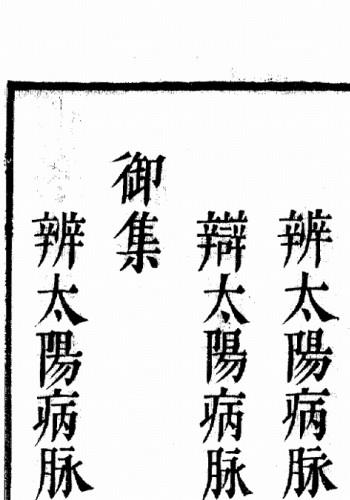 辨太陽病脉
辯太陽病脉
御集
辨太陽病脉